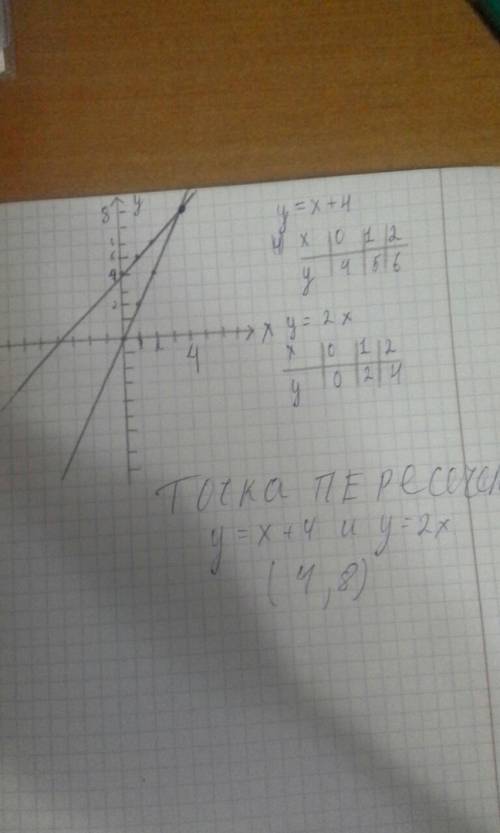 8 y
y = x + 4
x 0 1 2
y 4 5 6
6
4
2
x
y = 2x
2
4
x 0 1 2
y 0 2 4
ТОЧКА ПЕРЕСЕЧЕН
y = x + 4 и y = 2x
(4, 8)